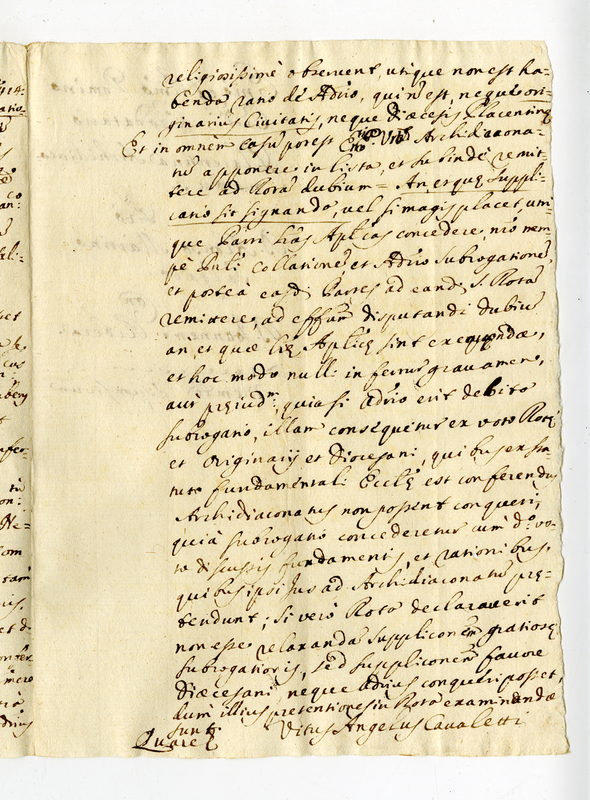 religiosissimè observent, utique non est ha-
benda ratio de Adrio, qui non est, neque ori-
ginarius Civitatis, neque Diæcesis Placentinę
Et in omnem casũ potest Archidiacona-
tũ apponere in lista, et subinde remit-
tere ad Rotã dubium = An ę Suppli-
catio sit signanda, vel si magis placet, utri-
que Parti lras Aplicas concedere, nẽm-
pè Puli Collationẽ, et Adrio Subrogationẽ,
et posteà easdẽ Partes ad eandẽ S. Rotã
remittere, ad effũm disputandi dubiũ
an, et quæ lrę Aplicę sint exequendæ,
et hoc modo nulli infertur gravamen,
aut pręiudm; quia si Adrio erit debita
subrogatio, illam consequetur ex voto Rotę
et Originarij et Diocesani, quibus ex sta-
tuto fundamentali Ecclę est conferendus
Archidiaconatus non possent conqueri,
quià subrogatio concederetur cum do vo-
to discussis fundamentis, et rationibus,
quibus ipsi Jus ad Archidiaconatũ pre-
tendunt; si verò Rota declaraverit
non esse relaxandã suppliconem gratiosę
subrogationis, sed supplicoñem favore
Diæcesani, neque Adrius conqueri posset,
dum illius pretentiones in Rota examinandæ
sunt.
Vitus Angelus Cavaletti
Quare